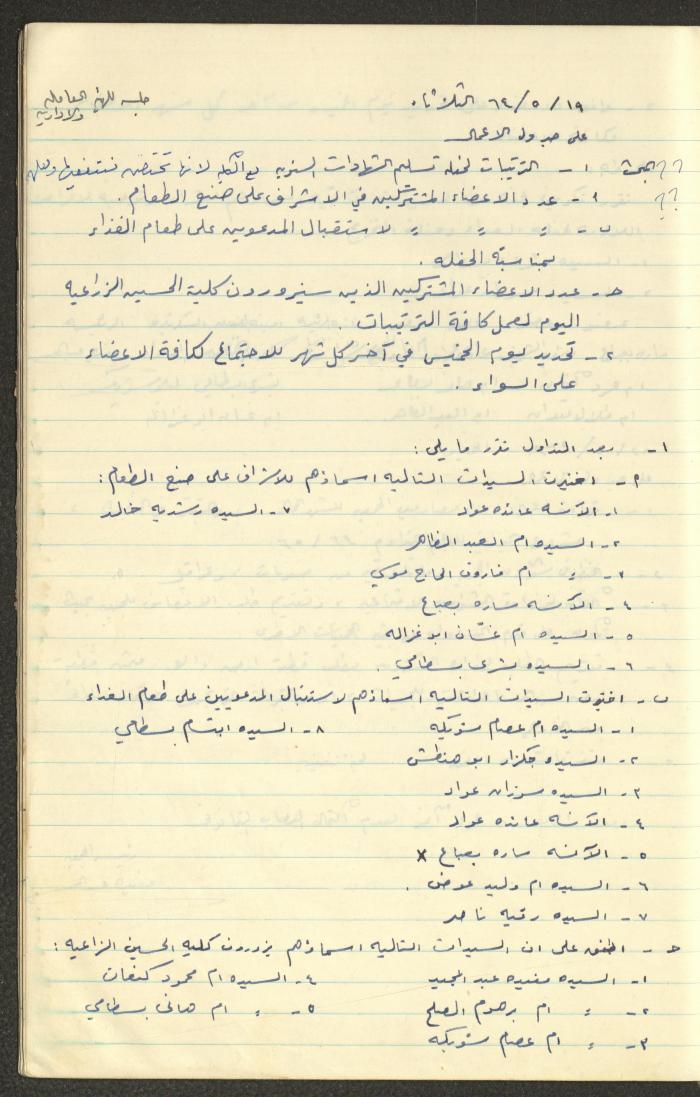 جلسه للهيئه العامله
والاداريه
١٩ / ٥ / ٦٤ الثلاثاء
على جدول الاعمال
١ - الترتيبات لحفله تسليم الشهادات السنويه
٩ - عدد الاعضاء المشتركين في الاشراف على صنع الطعام .
ب - = = = لاستقبال المدعوين على طعام الغذاء
بمناسبة الحفله .
حـ - عدد الاعضاء المشتركين الذين سيزورون كلية الحسين الزراعيه
اليوم لعمل كافة الترتيبات .
٢ - تحديد يوم الخميس في آخر كل شهر للاجتماع لكافة الاعضاء
على السواء .
١ - بعد التداول تقرر ما يلي :
٩ - اختيرت السيدات التاليه اسماؤهم للاشراف على صنع الطعام :
١ - الآنسه عائده عواد ٧ - السيده رشديه خالد
٢ - السيده ام العبد الظاهر
٣ - = ام فاروق الحاج موسي
٤ - الآنسه ساره بعباع
٥ - السيده ام غسّان ابو غزاله
٦ - السيده بشرى بسطامي .
ب - اختيرت السيدات التاليه اسماؤهم لاستقبال المدعويين على طعام الغداء
١ - السيده ام عصام شويكه ٨ - السيده ابتسام بسطامي
٢ - السيده جلزار ابو حنطش
٣ - السيده سوزان عواد
٤ - الآنسه عائده عواد
٥ - الآنسه ساره بعباع x
٦ - السيده ام وليد عوض .
٧ - السيده رقيه ناصر
حـ - اتفق على ان السيدات التاليه اسماؤهم يزورون كليه الحسين الزاعيه :
١ - السيده مفيده عبد المجيد ٤ - السيده ام محمود كنعان
٢ - = ام برهوم الصلح ٥ - = ام هاني بسطامي
٣ - = ام عصام شويكه